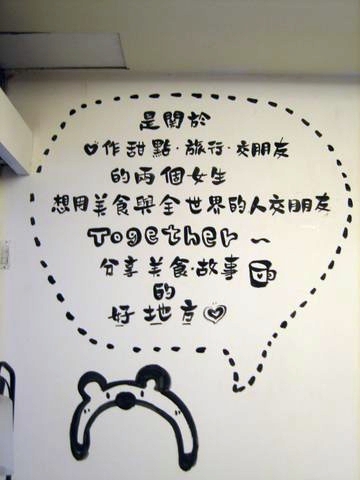 是關於
♡作甜點·旅行·交朋友
的兩個女生
想用美食與全世界的人交朋友
Together~
分享美食·故事
的
好地方♡